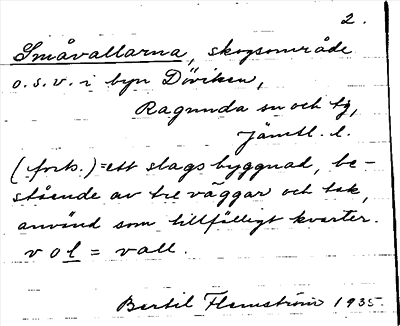 2.
Småvallarna, skogsområde
o.s.v. i byn Döviken,
Ragunda sn och tg,
Jämtl. l.
(forts.) = ett slags byggnad, be-
stående av tre väggar och tak,
använd som tillfälligt kvarter.
vol = vall.
Bertil Flemström 1935.